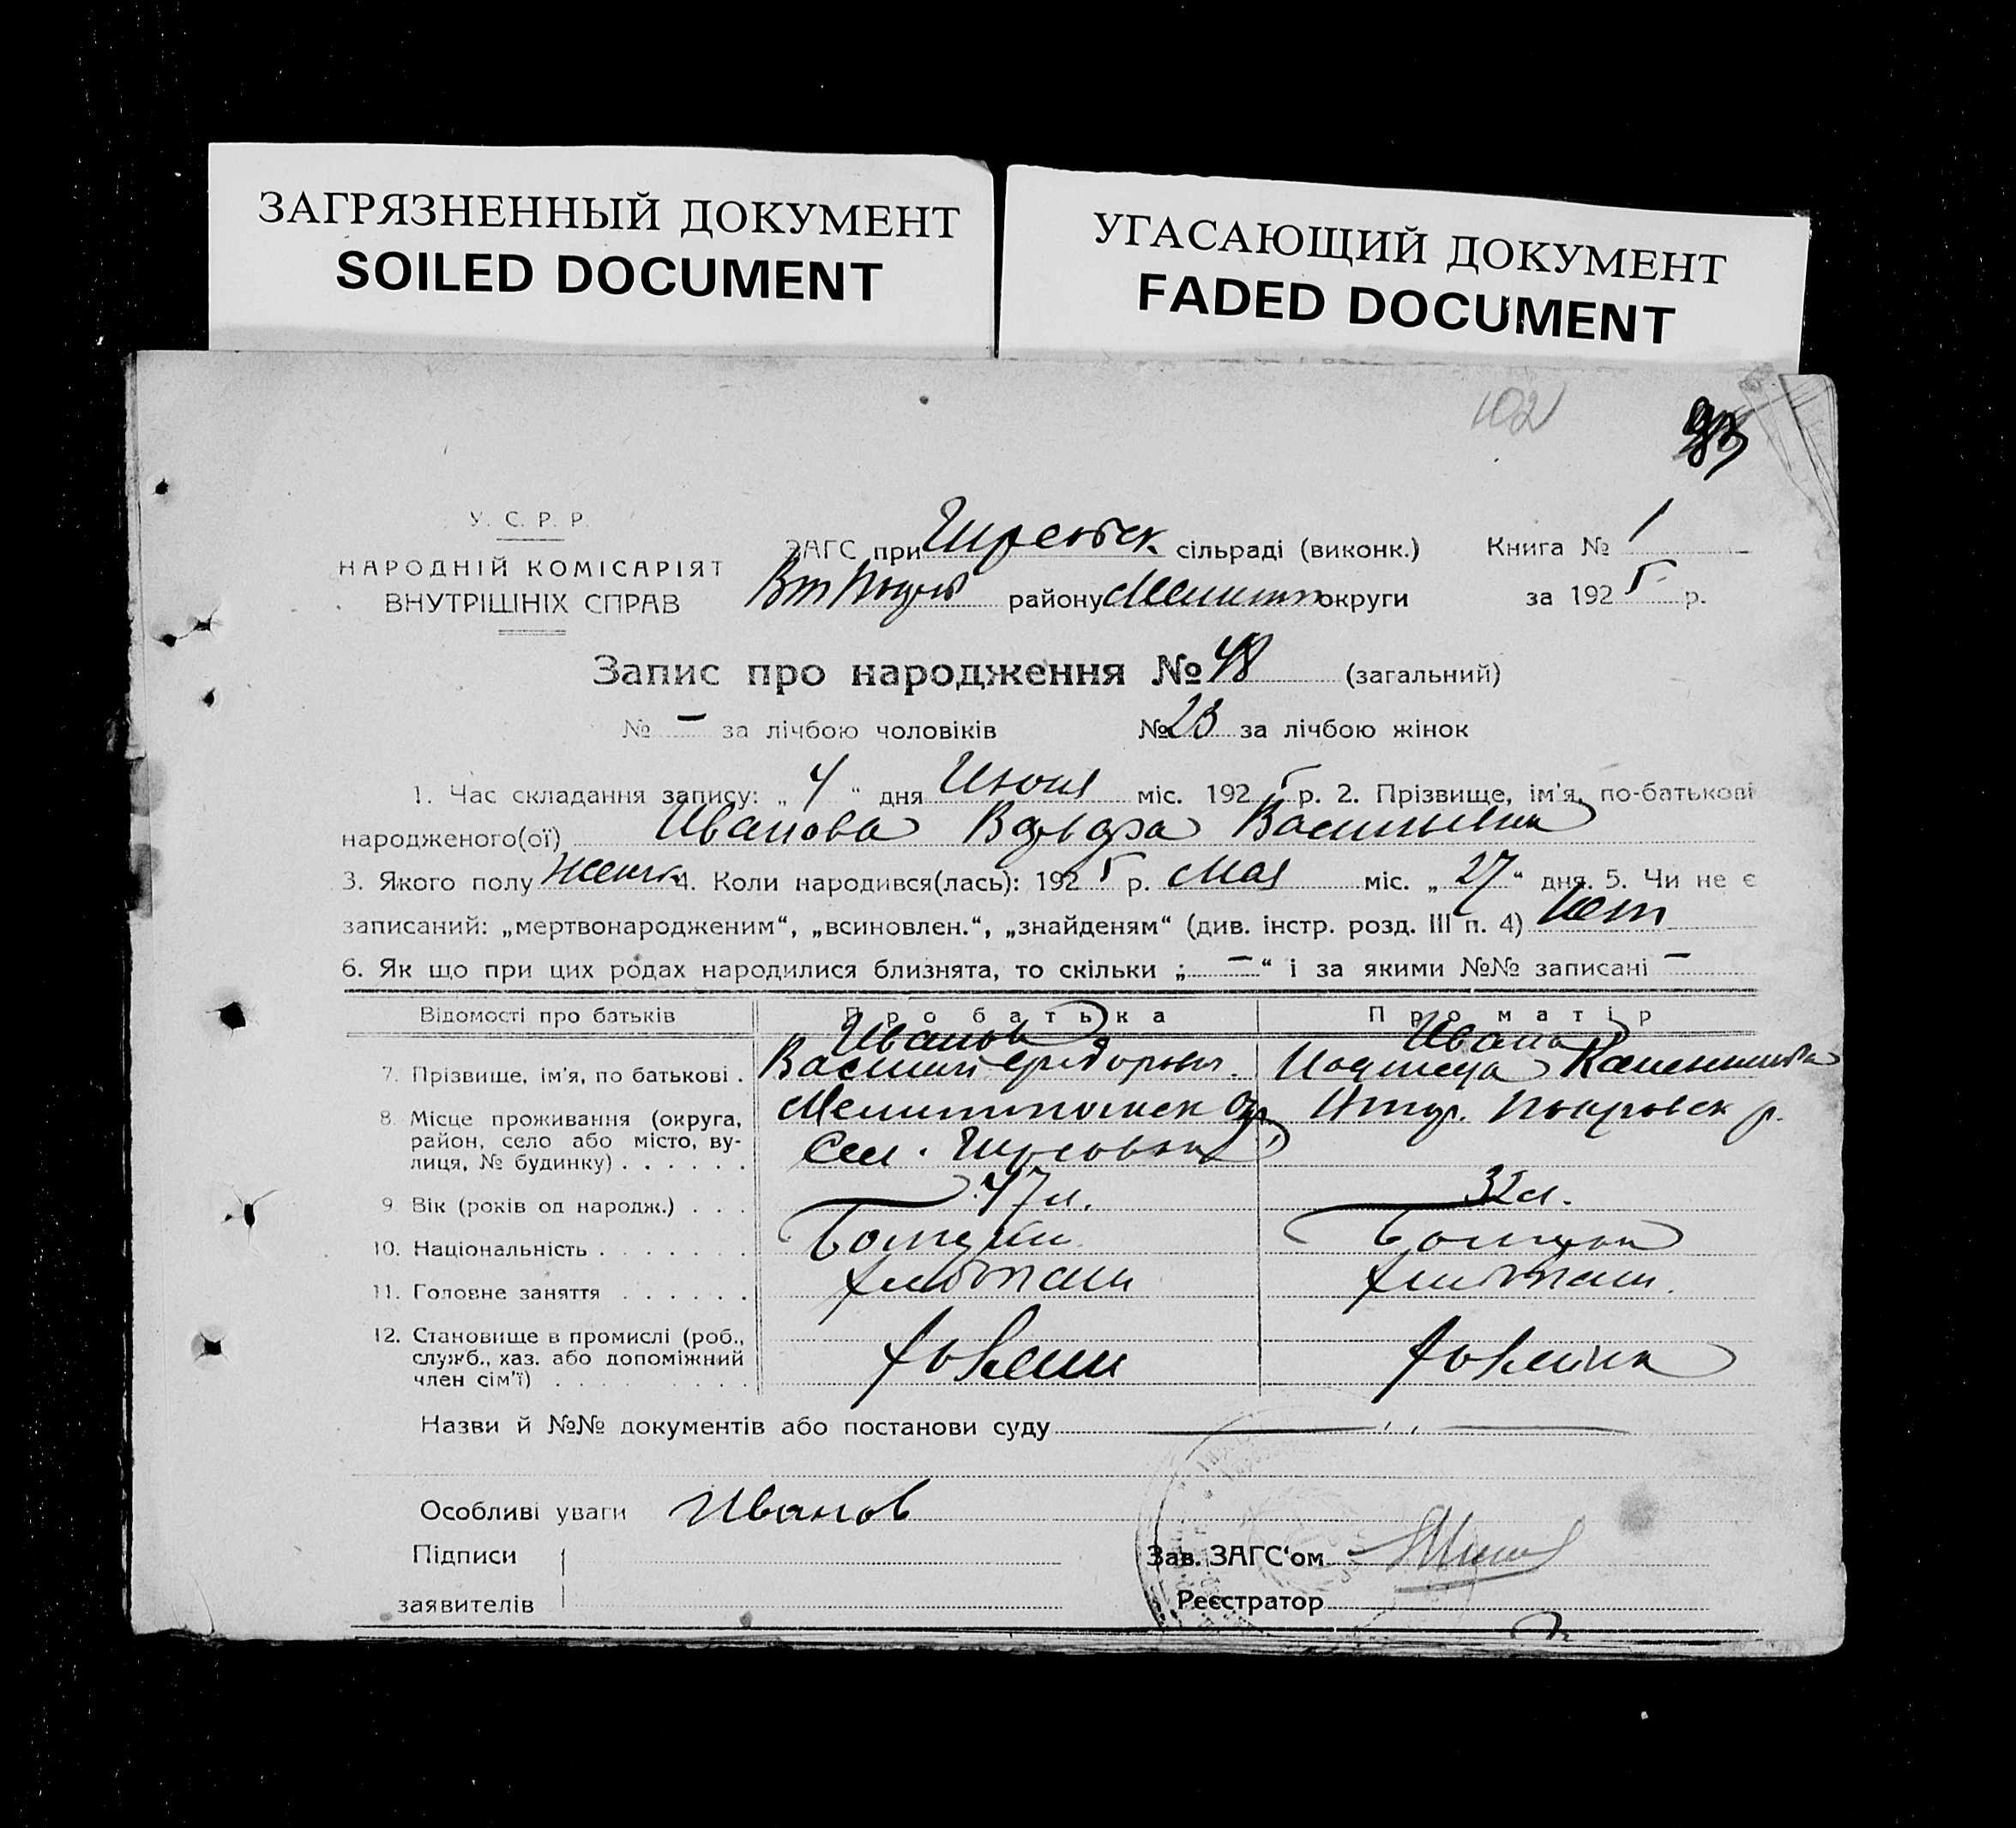 ЗАГРЯЗНЕННЫЙ ДОКУМЕНТ
SOILED DOCUMENT
УГАСАЮЩИЙ ДОКУМЕНТ
FADED DOCUMENT
102
У. С. Р. Р.
НАРОДНІЙ КОМІСАРІЯТ
ВНУТРІШНІХ СПРАВ
ЗАГС при сільраді (виконк.) Книга № 1
району округи за 1925 р.
Запис про народження № 48 (загальний)
№ – за лічбою чоловіків № 23 за лічбою жінок
1. Час складання запису: „ 4 “ дня міс. 1925 р. 2. Прізвище, ім'я, по-батькові
народженого(ої) Иванова Васильевна
3. Якого полу женск 4. Коли народився(лась): 1925 р. Мая міс. „ 27 “ дня. 5. Чи не є
записаний: „мертвонародженим“, „всиновлен.“, „знайденям“ (див. інстр. розд. III п. 4) Нет
6. Як що при цих родах народилися близнята, то скільки „ – “ і за якими №№ записані –
Відомості про батьків Про батька Про матір
Иванов Иванова
7. Прізвище, ім'я, по батькові . Василий
8. Місце проживання (округа, Мелитопольск Ок. Покровск р.
район, село або місто, ву-
лиця, № будинку) . . . . . . Сел.
9. Вік (років од народж.) . . . 47 л. 32 л.
10. Національність . . . . . . .
11. Головне заняття . . . . . . хлебопаш хлебопаш.
12. Становище в промислі (роб.,
служб., хаз. або допоміжний хозяин хозяйка
член сім'ї) . . . . . . . . . .
Назви й №№ документів або постанови суду
Особливі уваги Иванов
Підписи Зав. ЗАГС‘ом
заявителів Реєстратор